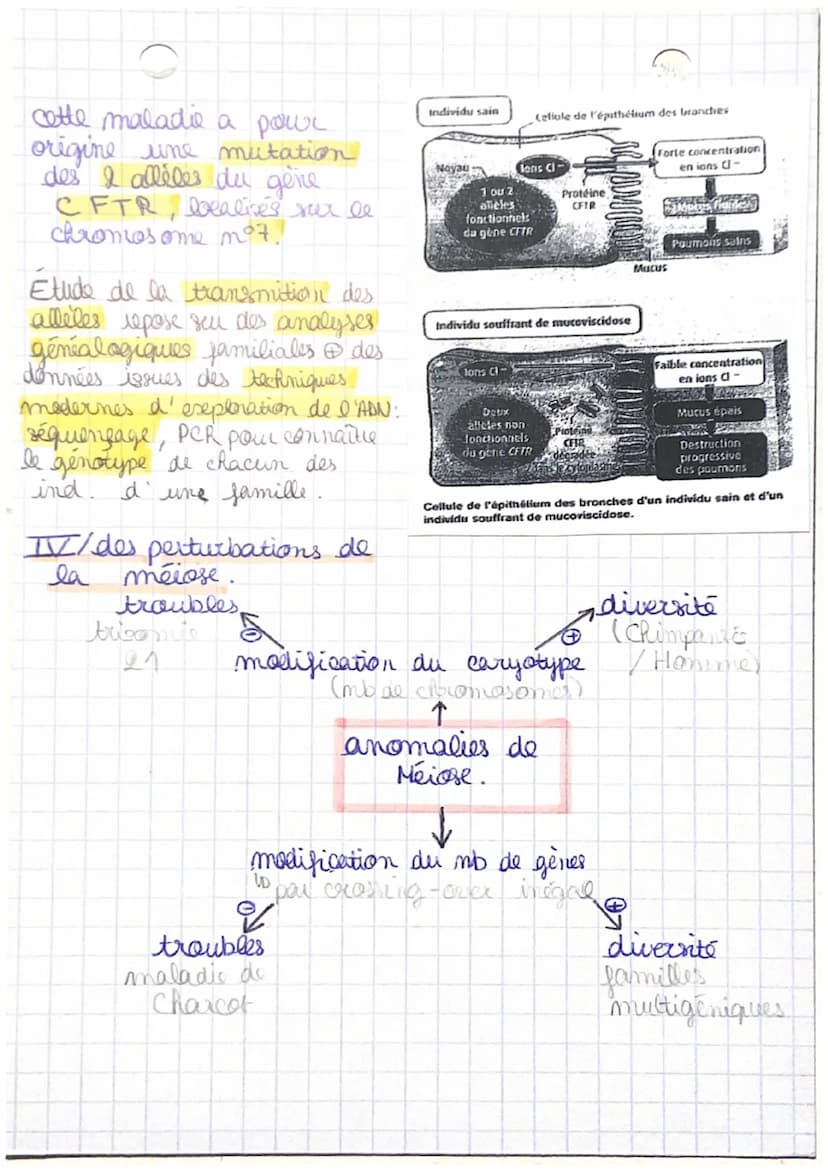 cette maladie a pour
origine une mutation
des 2 allèles du gène
CFTR, localisés sur le
chromosome n°7.
Étude de la transmition des
allèles repose sur des analyses
généalogiques familiales ⊕ des
données issues des techniques
modernes d'exploration de l'ADN:
séquençage, PCR pour connaître
le génotype de chacun des
ind. d'une famille.
Individu sain
Cellule de l'épithélium des bronches
Noyau
Ions Cl-
Forte concentration
en ions Cl-
1 ou 2
allèles
fonctionnels
du gène CFTR
Protéine
CFTR
Mucus fluide
Poumons sains
Mucus
Individu souffrant de mucoviscidose
Ions Cl-
Faible concentration
en ions Cl-
Deux
allèles non
fonctionnels
du gène CFTR
Protéine
CFTR
dégradée
dans le cytoplasme
Mucus épais
Destruction
progressive
des poumons
Cellule de l'épithélium des bronches d'un individu sain et d'un
individu souffrant de mucoviscidose.
IV/des perturbations de
la méiose.
troubles
trisomie
21
⊖
diversité
(Chimpanzé
/Homme)
⊕
modification du caryotype
(nb de chromosomes)
anomalies de
Méiose.
modification du nb de gènes
↳ par crossing-over inégal
⊖
⊕
troubles
maladie de
Charcot
diversité
familles
multigéniques